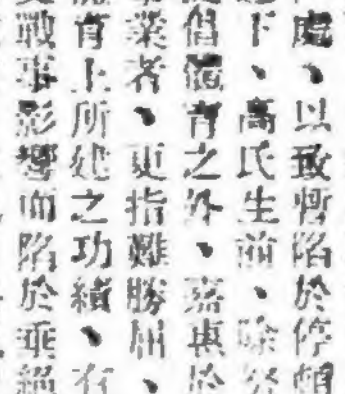 處、以致暫陷於停頓
下、高氏生前、除努
倡體育之外、嘉惠於
業者、更指難勝屈、
育上所建之功績、有
戰事影響而陷於垂絕